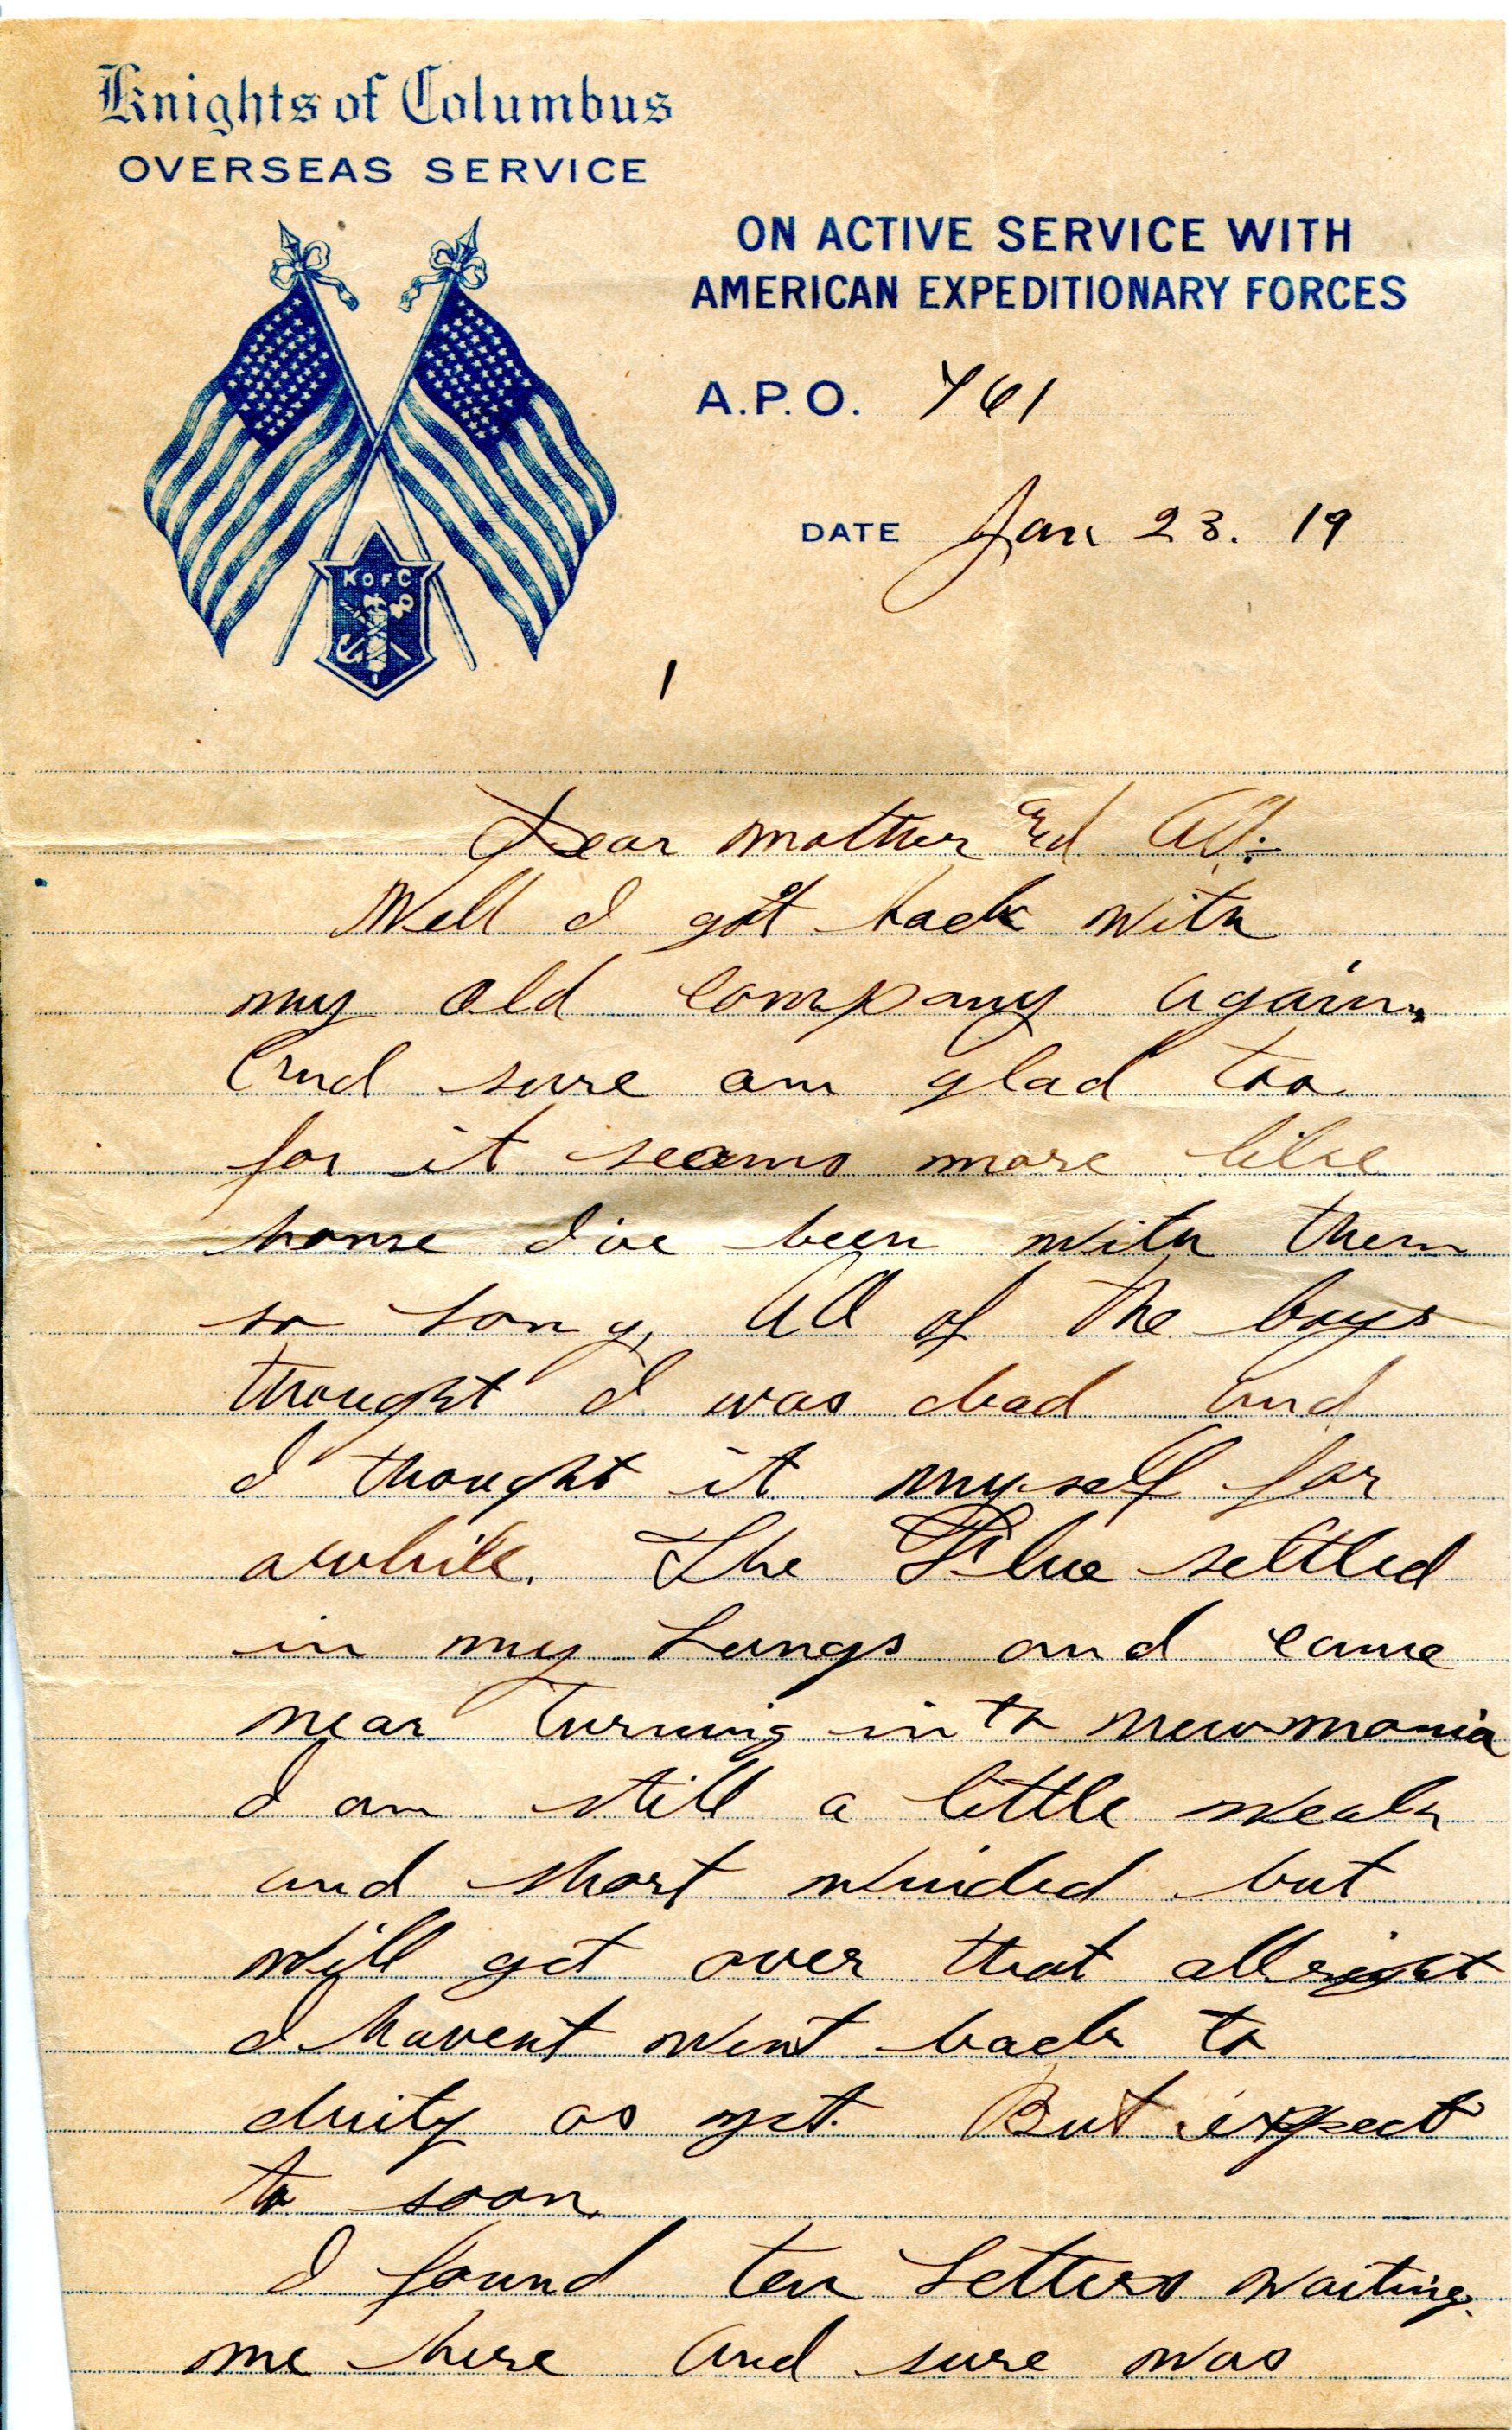 Knights of Columbus
OVERSEAS SERVICE
ON ACTIVE SERVICE WITH
AMERICAN EXPEDITIONARY FORCES
A.P.O. 761
DATE Jan 23. 19
K OF C
1
Dear mother and All:-
Well I got back with
my old company again,
And sure am glad too
for it seems more like
home I've been with them
so long, All of the boys
thought I was dead and
I thought it myself for
awhile. The Flue settled
in my Lungs and came
near turning into newmonia
I am still a little weak
and short winded but
will get over that allright
I havent went back to
duity as yet. But expect
to soon.
I found ten Letters waiting
me here and sure was